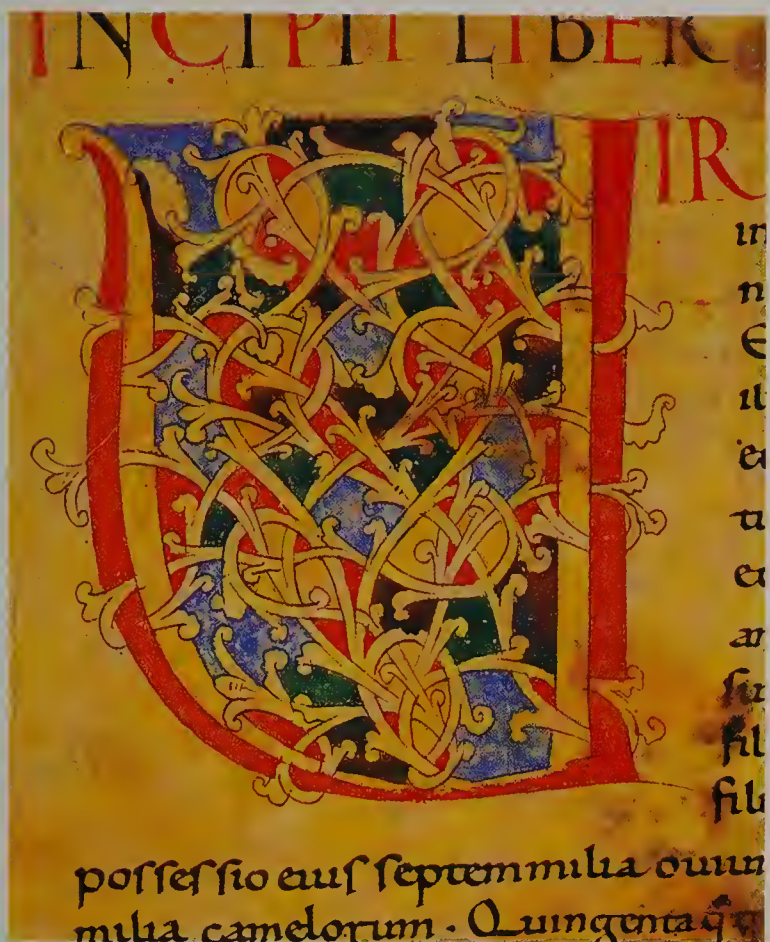 INCIPIT LIBER
UIR
in
n
E
il
et
ti
et
an
sin
fil
fili
possessio eius septem milia ouium
milia camelorum. Quingenta q